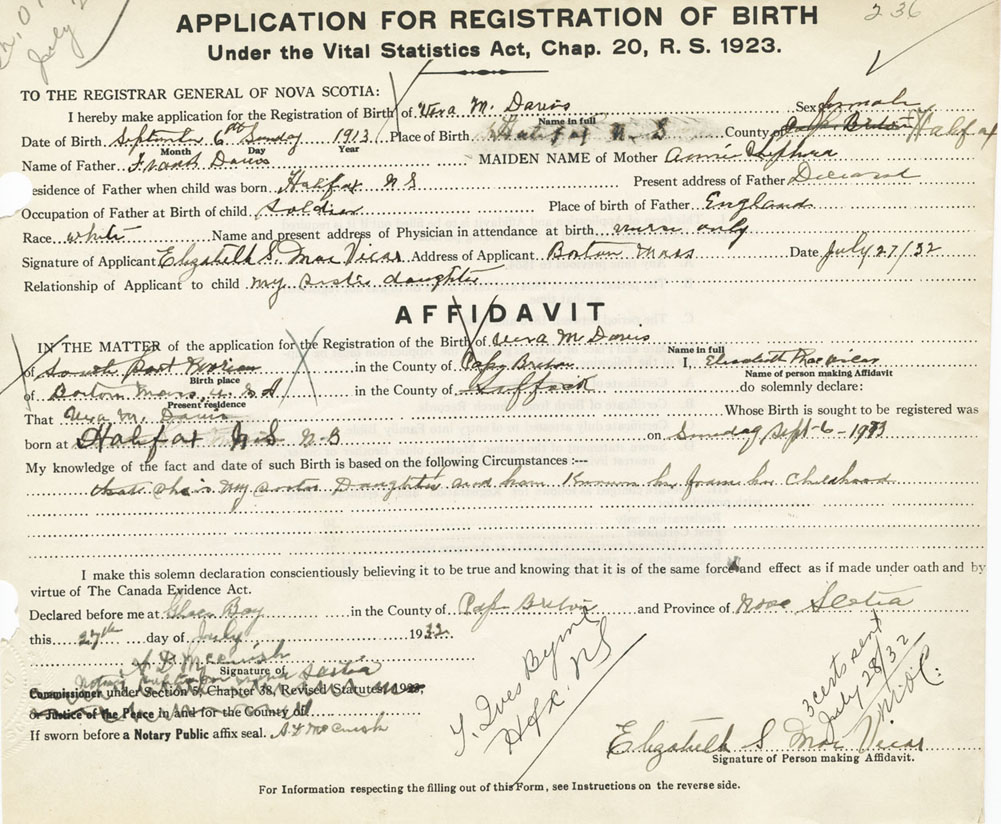 236
July
APPLICATION FOR REGISTRATION OF BIRTH
Under the Vital Statistics Act, Chap. 20, R. S. 1923.
TO THE REGISTRAR GENERAL OF NOVA SCOTIA:
I hereby make application for the Registration of Birth of Vera M. Davis Sex female
Name in full
Date of Birth September 6th Sunday 1913 Place of Birth Halifax N. S County of Cape Breton Halifax
Month Day Year
Name of Father Frank Davis MAIDEN NAME of Mother Annie
esidence of Father when child was born Halifax NS Present address of Father Deceased
Occupation of Father at Birth of child Soldier Place of birth of Father England
Race white Name and present address of Physician in attendance at birth nurse only
Signature of Applicant Elizabeth S. Mac Vicar Address of Applicant Boston Mass Date July 27/32
Relationship of Applicant to child my sisters daughter
AFFIDAVIT
IN THE MATTER of the application for the Registration of the Birth of Vera M Davis
Name in full
of South Port Morien in the County of Cape Breton I, Elizabeth MacVicar
Birth place Name of person making Affidavit
of Boston Mass, U.S.A in the County of Suffock do solemnly declare:
Present residence
That Vera M. Davis Whose Birth is sought to be registered was
born at Halifax N.S N.S on Sunday Sept-6-1913
My knowledge of the fact and date of such Birth is based on the following Circumstances :---
that she is my sister Daughter and have Known her from her childhood
I make this solemn declaration conscientiously believing it to be true and knowing that it is of the same force and effect as if made under oath and by
virtue of The Canada Evidence Act.
Declared before me at Glace Bay in the County of Cape Breton and Province of Nova Scotia
this 27th day of July 1932.
Signature of
Notary Public for Nova Scotia
Commissioner under Section 5, Chapter 38, Revised Statutes 1923,
or Justice of the Peace in and for the County of
If sworn before a Notary Public affix seal.
Hfx. NS
3 cents sent
July 28/32
Elizabeth S Mac Vicar
Signature of Person making Affidavit.
For Information respecting the filling out of this Form, see Instructions on the reverse side.